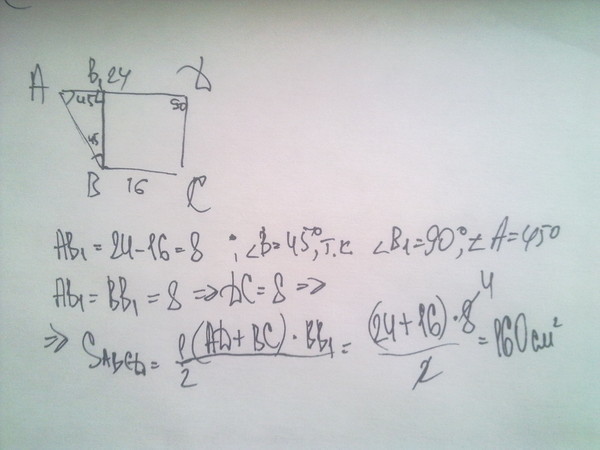 A B₁ 24 D
45 90
45
B 16 C
AB₁ = 24-16 = 8 ; ∠B = 45°, т.к ∠B₁ = 90°, ∠A = 450
AB₁ = BB₁ = 8 => DC = 8 =>
=> SABCD = 1(AD + BC) · BB₁ / 2 = (24 + 16) · 8 4 / 2 = 160 см²